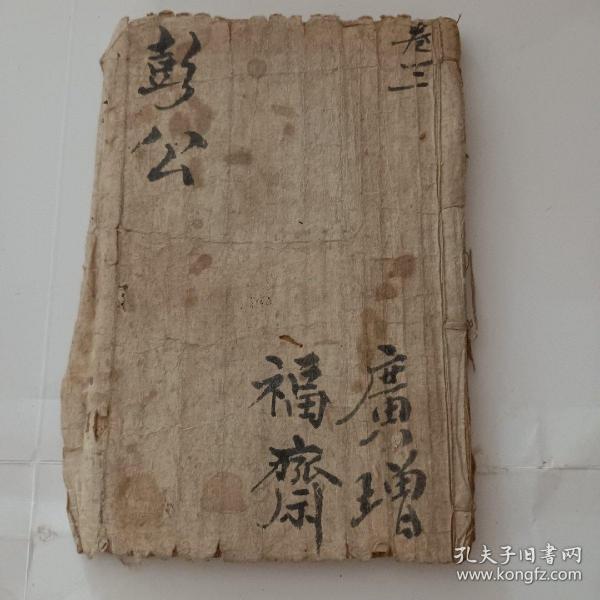 卷三
廣增
福齋
彭公
孔夫子旧書网
www.kongfz.com